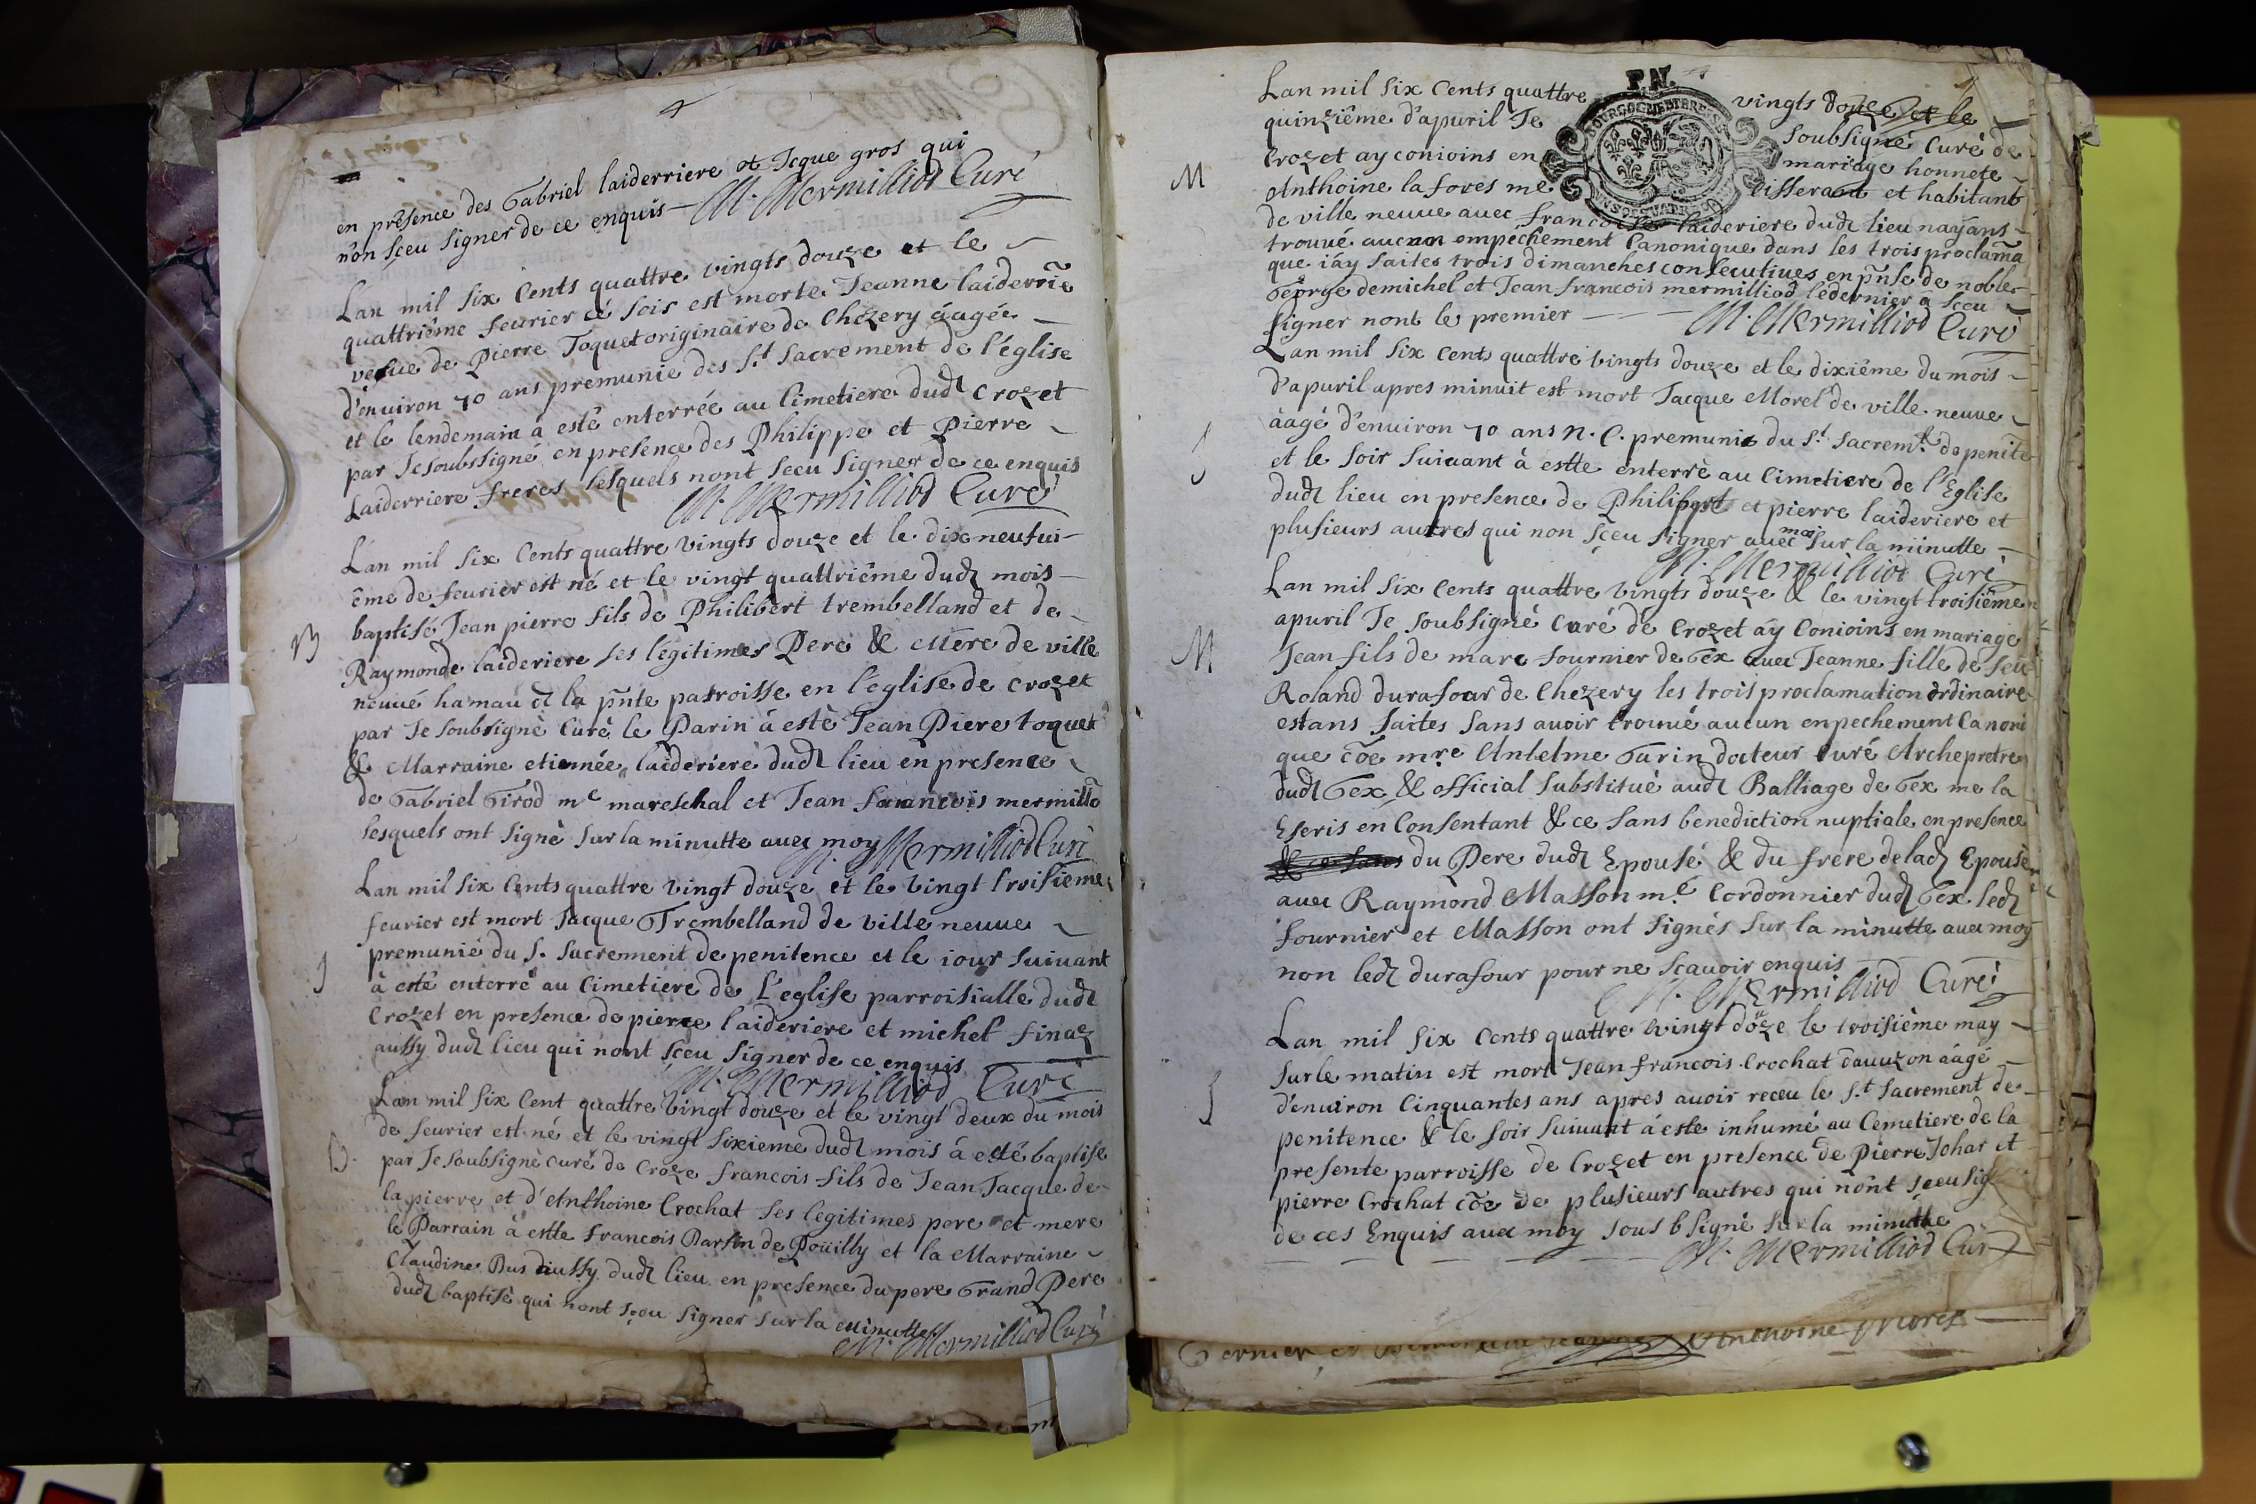 4
en présence des Gabriel laiderriere et Jcque gros qui
non sceu signer de ce enquis M. Mermilliod Curé
Lan mil six Cents quattre vingts douze et le
quattriême feurier cé sois est morte Jeanne laiderrie
veefue de Pierre Joquet originaire de Chezery áagée
d'enuiron 70 ans premunie des S.t Sacrement de l'église
et le lendemain à esté enterrée au Cimetiere dud. Crozet
par Je soubssigné en presence des Philippe et Pierre
Laiderriere freres lesquels nont sceu signer de ce enquis
M. Mermilliod Curé
B
Lan mil six Cents quattre vingts douze et le dix neufui-
ême de feurier est né et le vingt quattriême dud. mois
baptisé Jean pierre fils de Philibert trembelland et de
Raymonde laideriere ses légitimes Pere & Mere de ville
neuué hamau d la pnte patroisse en l'église de Crozet
par Je soubsigné Curé le Parin á estè Jean Piere toquet
& Marraine etiennée laideriere dud. lieu en presence
de Gabriel Girod m.e mareschal et Jean francois mermillio
lesquels ont signé sur la minutte auec moy M. Mermilliod Curé
J
Lan mil six Cents quattre vingt douze et le vingt troisieme
feurier est mort Jacque Trembelland de ville neuue
premunié du S. Sacrement de penitence et le iour suiuant
à esté enterré au Cimetiere de L'eglise parroisialle dud.
Crozet en presence de pierre laideriere et michel finaz
aussy dud. lieu qui nont sceu signer de ce enquis
M. Mermilliod Curé
B.
Lan mil six Cent quattre vingt douze et le vingt deux du mois
de feurier est né et le vingt sixieme dud. mois à esté baptise
par Je soubsigné curé de Croze francois fils de Jean Jacque de
la pierre et d'Anthoine Crochat ses legitimes pere et mere
le Parrain à estte francois Parsin de Poüilly et la Marraine
Claudine Dus aiussy dud. lieu en presence du pere Grand Pere
dud. baptisé qui nont sceu signer sur la minutte
M. Mermilliod Curé
P.N.
M
Lan mil six Cents quattre vingts douze et le
quinziême d'apuril Je soubsigné Curé de
Crozet ay conioins en mariage honnete
Anthoine la fores me tisserant et habitant
de ville neuue avec francoise laideriere dud. lieu nayans
trouué aucun empêchement Canonique dans les trois proclama
que i'áy faites trois dimanches consecutiues en pnse de noble
George demichel et Jean francois mermilliod ledernier à sceu
signer nont le premier M. Mermilliod Curé
J
Lan mil six Cents quattre vingts douze et le dixiême du mois
d'apuril apres minuit est mort Jacque Morel de ville neuue
áagé d'enuiron 70 ans N. C. premunie du S.t Sacrem.t de penite
et le soir suiuant à estte enterré au Cimetiere de l'Eglise
dud. lieu en presence de Philibert et pierre laideriere et
plusieurs autres qui non sceu signer auec moi sur la minutte
M. Mermilliod Curé
M
Lan mil six Cents quattre vingts douze & le vingt troisiême
apuril Je soubsigné curé de Crozet ay Conioins en mariage
Jean fils de marc fournier de Gex auec Jeanne fille de feu
Roland durafour de Chezery les trois proclamation ordinaire
estans faites sans auoir trouué aucun enpechement Canoni
que cõe m.re Anselme Garin docteur curé Archepretre
dud. Gex & official substitué aud. Balliage de Gex me la
Escris en Consentant & ce sans benediction nuptiale en presence
& ce sans du Pere dud. Epousé & du frere de lad. Epouse
auec Raymond Masson m.e Cordonnier dud. Gex. led.
fournier et Masson ont signés sur la minutte auec moy
non led. durafour pour ne scauoir enquis
M. Mermilliod Curé
J
Lan mil six Cents quattre vingt doze le troisième may
sur le matin est mort Jean francois Crochat dauuzon áagé
d'enuiron Cinquantes ans apres auoir receu le S.t Sacrement de
penitence & le soir suiuant à este inhumé au Cemetiere de la
presente parroisse de Crozet en presence de Pierre Johar et
pierre Crochat cõe de plusieurs autres qui nont sceu sig
de ces Enquis auec moy sousbsigné sur la minutte
M. Mermilliod Curé
Anthoine